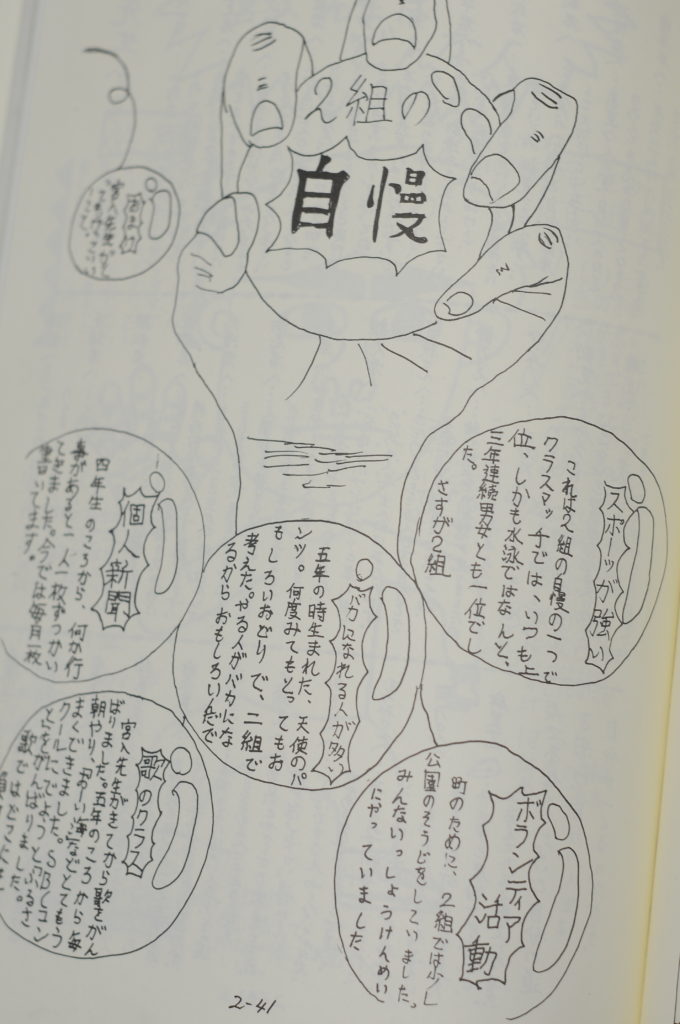 2組の
自慢
宮入先生が
スポーツが強い
これは2組の自慢の一つで
クラスマッチでは、いつも上
位、しかも水泳ではなんと、
三年連続男女とも一位でし
た。
さすが2組
バカになれる人が多い
五年の時生まれた、天使のパ
ンツ。何度みてもとってもお
もしろいおどりで、二組で
考えた。やる人がバカにな
るからおもしろいんだで
個人新聞
四年生のころから、何か行
事があると一人一枚ずつかい
てきました。今では毎月一枚
書いてます。
ボランティア
活動
町のために、2組では少し
公園のそうじをしていました。
みんないっしょうけんめい
にやっていました
歌のクラス
宮入先生がきてから歌をがん
ばりました。五年のころから毎
朝やり、
などとてもう
まくできました。SBCコン
クールにでようと、ふるさ
とをがんばりました。
歌ではどこにも
2-41